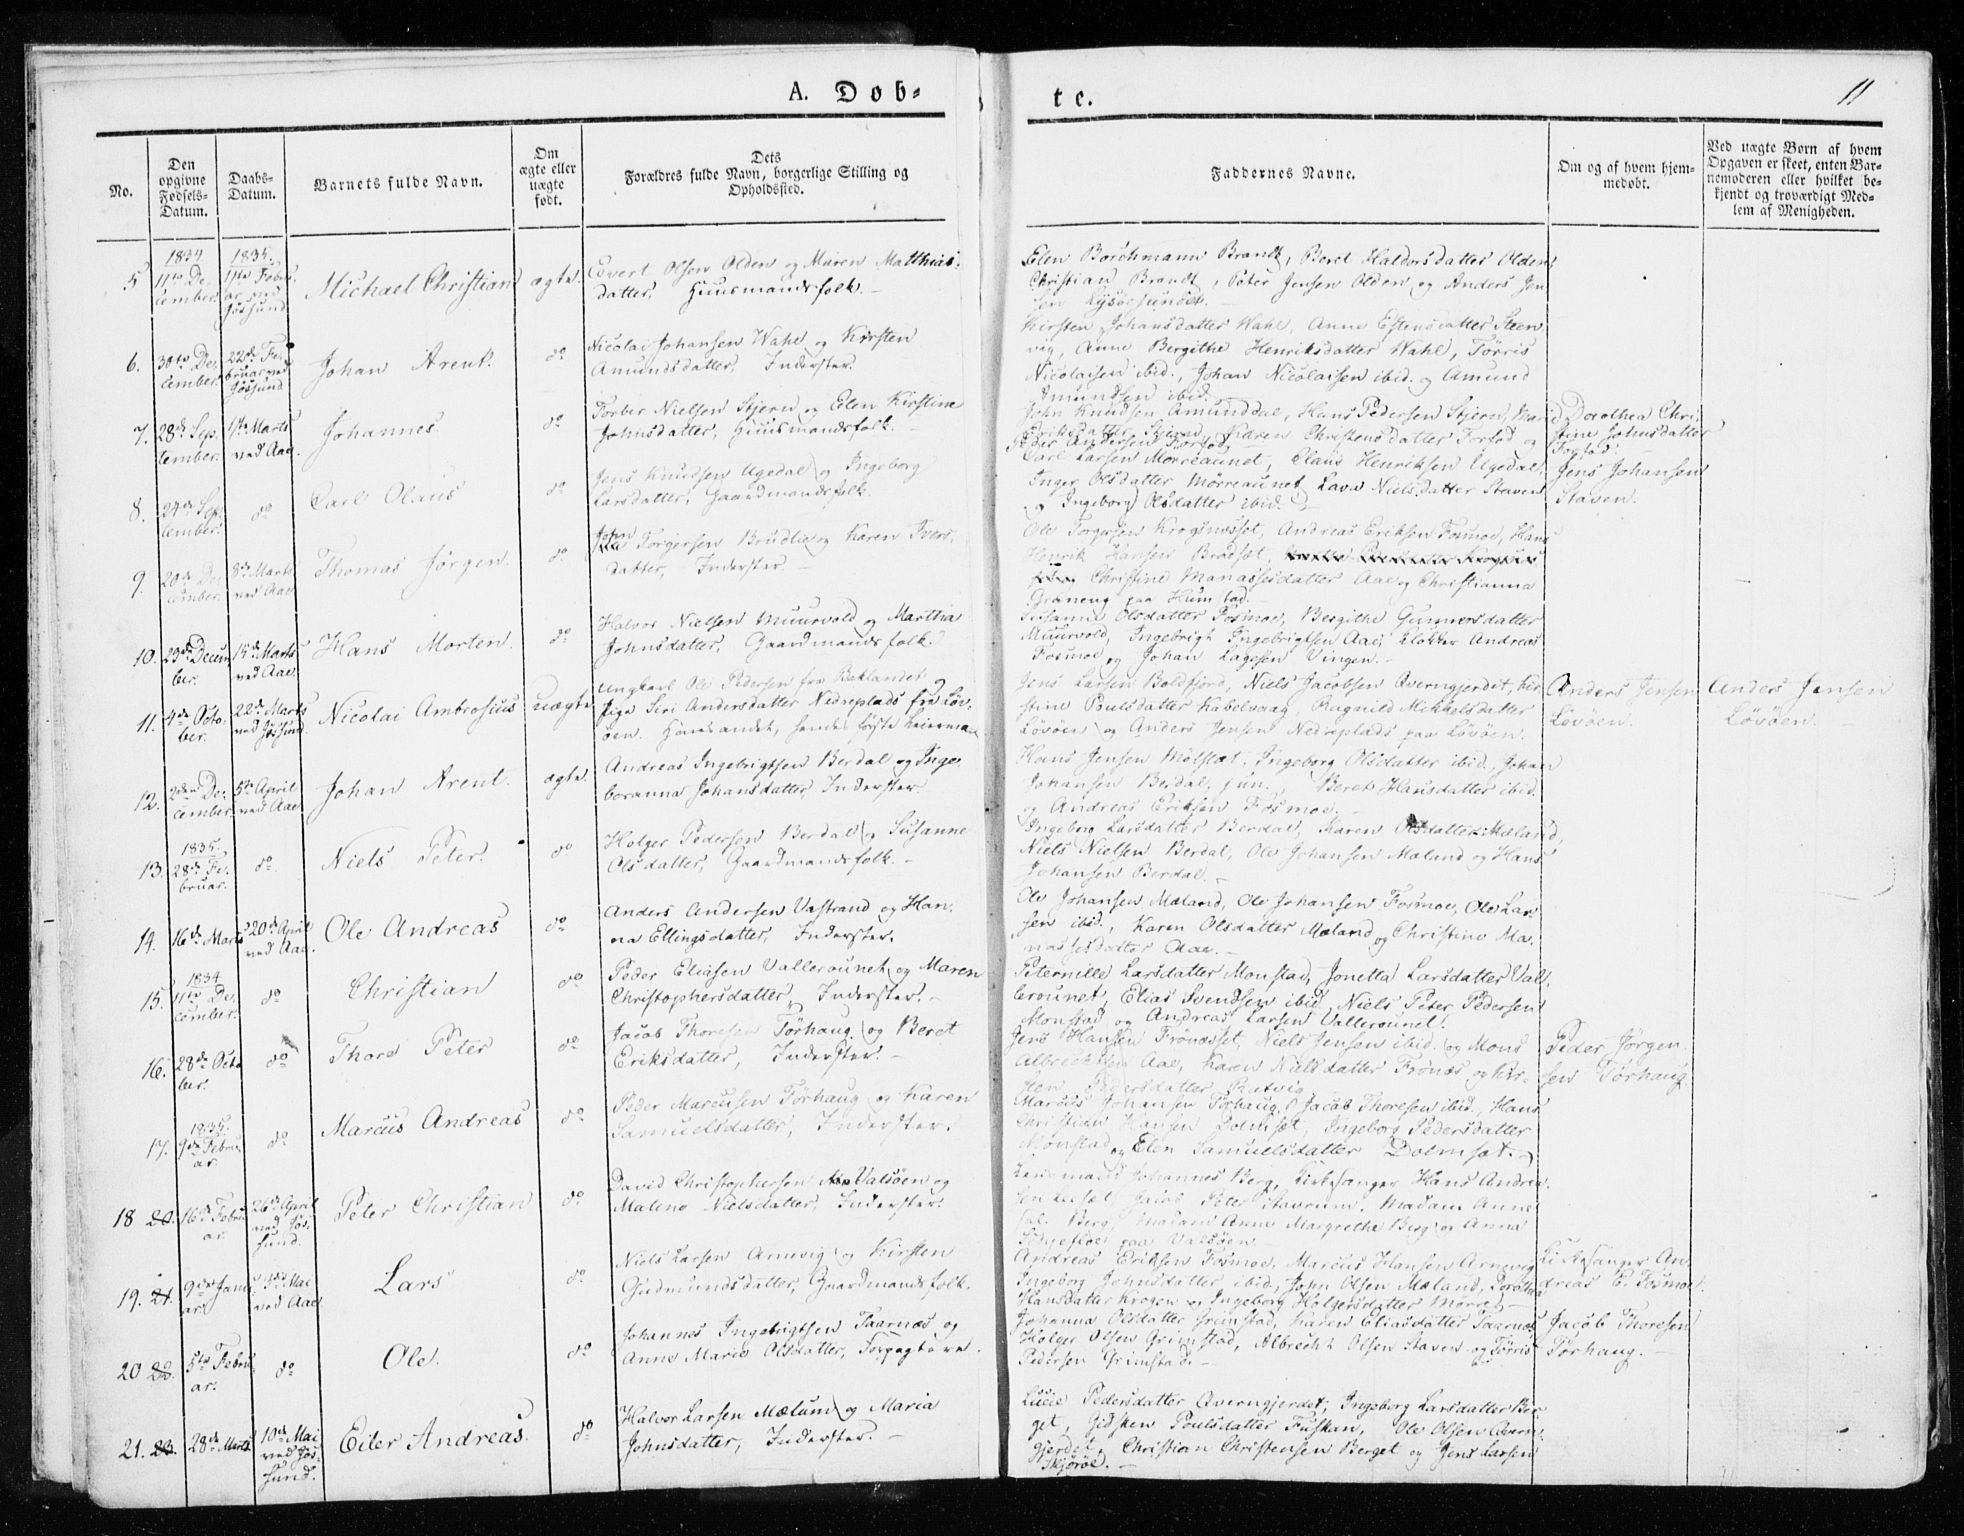 A. Døb-
te.
11
No.
Den opgivne Fødsels-Datum.
Daabs-Datum.
Barnets fulde Navn.
Om ægte eller uægte født.
Dets Forældres fulde Navn, borgerlige Stilling og Opholdssted.
Faddernes Navne.
Om og af hvem hjemmedøbt.
Ved uægte Børn af hvem Opgaven er skeet, enten Barnemoderen eller hvilket bekjendt og troværdigt Medlem af Menigheden.
5
1834
11te De-
cember.
1835.
11te Febru-
ar ved
Jøssund
Michael Christian
ægte.
Evert Olsen Olden og Maren Matthias-
datter, Huusmandsfolk. -
Elen Borchmann Brandt, Beret Haldorsdatter Olden,
Christian Brandt, Peter Jensen Olden og Anders Jen
sen Lysøesundet. -
6.
30te De-
cember.
22de Fe-
bruar ved
Jøssund
Johan Arent.
do
Nicolai Johansen Wahl og Kirsten
Amundsdatter, Inderster.
Kirsten Johansdatter Wahl, Anne Estensdatter Steen
vig, Anne Bergithe Henriksdatter Wahl, Tørris
Nicolaisen ibid., Johan Nicolaisen ibid. og Amund
Amundsen ibid.
7.
28de Sep-
tember.
1ste Marts
ved Aae.
Johannes
do
Torber Nielsen Stjern og Elen Kirstine
Johnsdatter, Huusmandsfolk. -
John Knudsen Amunddal, Hans Pedersen Stjern, Marit
Eriksdatter Stjern, Karen Christensdatter Forfod og
Peder Andersen Forfod.
Dorothea Chri-
stine Johnsdatter
Forfod.
8.
24de Sep-
tember.
do
Carl Olaus
do
Jens Knudsen Ugedal og Ingeborg
Larsdatter, Gaardmandsfolk.
Carl Larsen Mørreaunet, Claus Henriksen Ugedal,
Inger Olsdatter Mørreaunet, Lava Nielsdatter Staven
og Ingeborg Olsdatter ibid.
Jens Johansen
Staven.
9.
20de De-
cember.
8de Marts
ved Aae
Thomas Jørgen.
do
John
Torgersen Brudlie og Karen Ivers-
datter, Inderster. -
Ole Torgersen Krogsnesset, Andreas Eriksen Fosmoe, Hans
Henrik Hansen Bradset,
Christine Manassesdatter Aae og Christianna
Graneng paa Humstad. -
10.
29de Decem
ber.
15de Marts
ved Aae.
Hans Morten.
do
Halvor Nielsen Muurvold og Martha
Johnsdatter, Gaardmandsfolk.
Susanne Olsdatter Fosmoe, Bergithe Gunnersdatter
Muurvold, Ingebrigt Ingebrigtsen Aae, Klokker Andreas
Fosmoe og Johan Lagesen Vingen. -
11.
4de Octo-
ber.
22de Marts
ved Jøssund.
Nicolai Ambrosius
uægte
Ungkarl Ole Pedersen fra Baklandet og
Pige Siri Andersdatter Nedreplads fra Løv-
øen. Hans andet, hendes første Leierman
Jens Larsen Boldfjord, Niels Jacobsen Qverngjerdet, Kir-
stine Poulsdatter Kabelvaag, Ragnild Mikkelsdatter
Løvøen og Anders Jensen Nedreplads paa Løvøen.
Anders Jensen
Løvøen.
Anders Jensen
Løvøen. -
12.
2den De-
cember.
5te April
ved Aae.
Johan Arent.
ægte.
Andreas Ingebrigtsen Berdal og Inge-
boranna Johansdatter, Inderster.
Hans Jensen Mølslæt, Ingeborg Olsdatter ibid., Johan
Johansen Berdal, jun., Beret Hansdatter ibid.
og Andreas Eriksen Fosmoe.
13.
1835.
28de Fe-
bruar.
do.
Niels Peter.
do
Holger Pedersen Berdal og Susanne
Olsdatter, Gaardmandsfolk. -
Ingeborg Larsdatter Berdal, Karen Olsdatter Mæland,
Niels Nielsen Berdal, Ole Johansen Mæland og Hans
Johansen Berdal. -
14.
16de Marts
20de April
ved Aae.
Ole Andreas
do
Anders Andersen Vastrand og Han-
na Ellingsdatter, Inderster.
Ole Johansen Mæland, Ole Johansen Fosmoe, Ole Lar-
sen ibid., Karen Olsdatter Mæland og Christine Ma-
nassesdatter Aae. -
15.
1834
11te De-
cember.
do
Christian
do
Peder Eliasen Vallerounet og Maren
Christophersdatter, Inderster. -
Peternille Larsdatter Monstad, Jonetta Larsdatter Val-
lerounet, Elias Svendsen ibid., Niels Peter Pedersen
Monstad og Andreas Larsen Vallerounet.
16.
28de Octo-
ber.
do
Thore Peter
do
Jacob Thoresen Tørhaug og Beret
Eriksdatter, Inderster. -
Jens Hansen Frønæsset, Niels Jensen ibid. og Mons
Albrechtsen Aae, Karen Nielsdatter Frønæs og Kir-
sten Pedersdatter Ratvig
Peder Jørgen-
sen Tørhaug
17.
1835.
9de Febru
ar.
do
Marcus Andreas
do
Peder Marcusen Tørhaug og Karen
Samuelsdatter, Inderster.
Marcus Johansen Tørhaug, Jacob Thoresen ibid., Hans
Christian Hansen Dolmset, Ingeborg Pedersdatter
Mønstad og Elen Samuelsdatter Dolmsæt. -
18 20.
16de Febru
ar.
26de April
ved Jøs-
sund.
Peter Christian
do
David Christophersen Valsøen og
Malena Nielsdatter, Inderster.
Lensmand Johannes Berg, Kirkesanger Hans Andrea
sen Jacob Peter Stavrum, Madam Anne
Berg, Madam Anne Margrethe Berg og Anna
paa Valsøen -
19. 21.
9de Janu-
ar.
3die Mai
ved Aae
Lars
do
Niels Larsen Arnevig og Kirsten
Gudmundsdatter, Gaardmandsfolk.
Andreas Eriksen Fosmoe, Marcus Hansen Arnevig
Ingeborg Johnsdatter ibid., John Olsen Mæland, Dorothea
Hansdatter Krogen og Ingeborg Holgersdatter Mørre. -
Kirkesanger An-
dreas E. Fosmoe.
20 22.
5te Febru-
ar.
do
Ole.
do
Johannes Ingebrigtsen Taarnæs og
Anne Marie Olsdatter, Forpagtere.
Johanna Olsdatter Grimstad, Karen Eliasdatter Taarnæs
Holger Olsen Grimstad, Albrecht Olsen Staven og Tørris
Pedersen Grimstad. -
Jacob Thoresen
Tørhaug. -
21. 23.
28de Marts
10de Mai
ved Jøs-
sund.
Eiler Andreas.
do
Halvor Larsen Mælum og Maria
Johnsdatter, Inderster. -
Lucie Pedersdatter Qverngjerdet, Ingeborg Larsdatter Ber-
get, Gidsken Poulsdatter Fuskan, Ole Olsen Qvern-
gjerdet, Christian Christensen Berget og Jens Larsen
Skjørøe. -